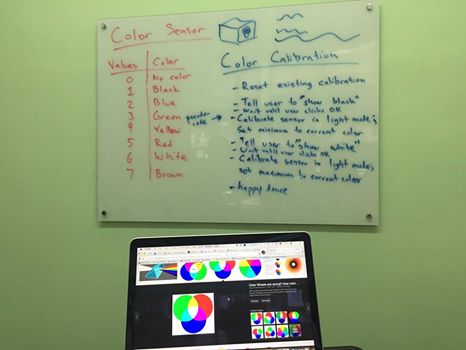 Color Sensor
Values Color
0 No color
1 Black
2 Blue
3 Green
4 Yellow
5 Red
6 White
7 Brown
pseudo-code
Color Calibration
- Reset existing calibration
- Tell user to "show black"
- Wait until user clicks OK
- Calibrate sensor in light mode;
set minimum to current color
- Tell user to "show white"
- Wait until user clicks OK
- Calibrate sensor in light mode;
set maximum to current color
- happy dance
Color Wheels are wrong? How color